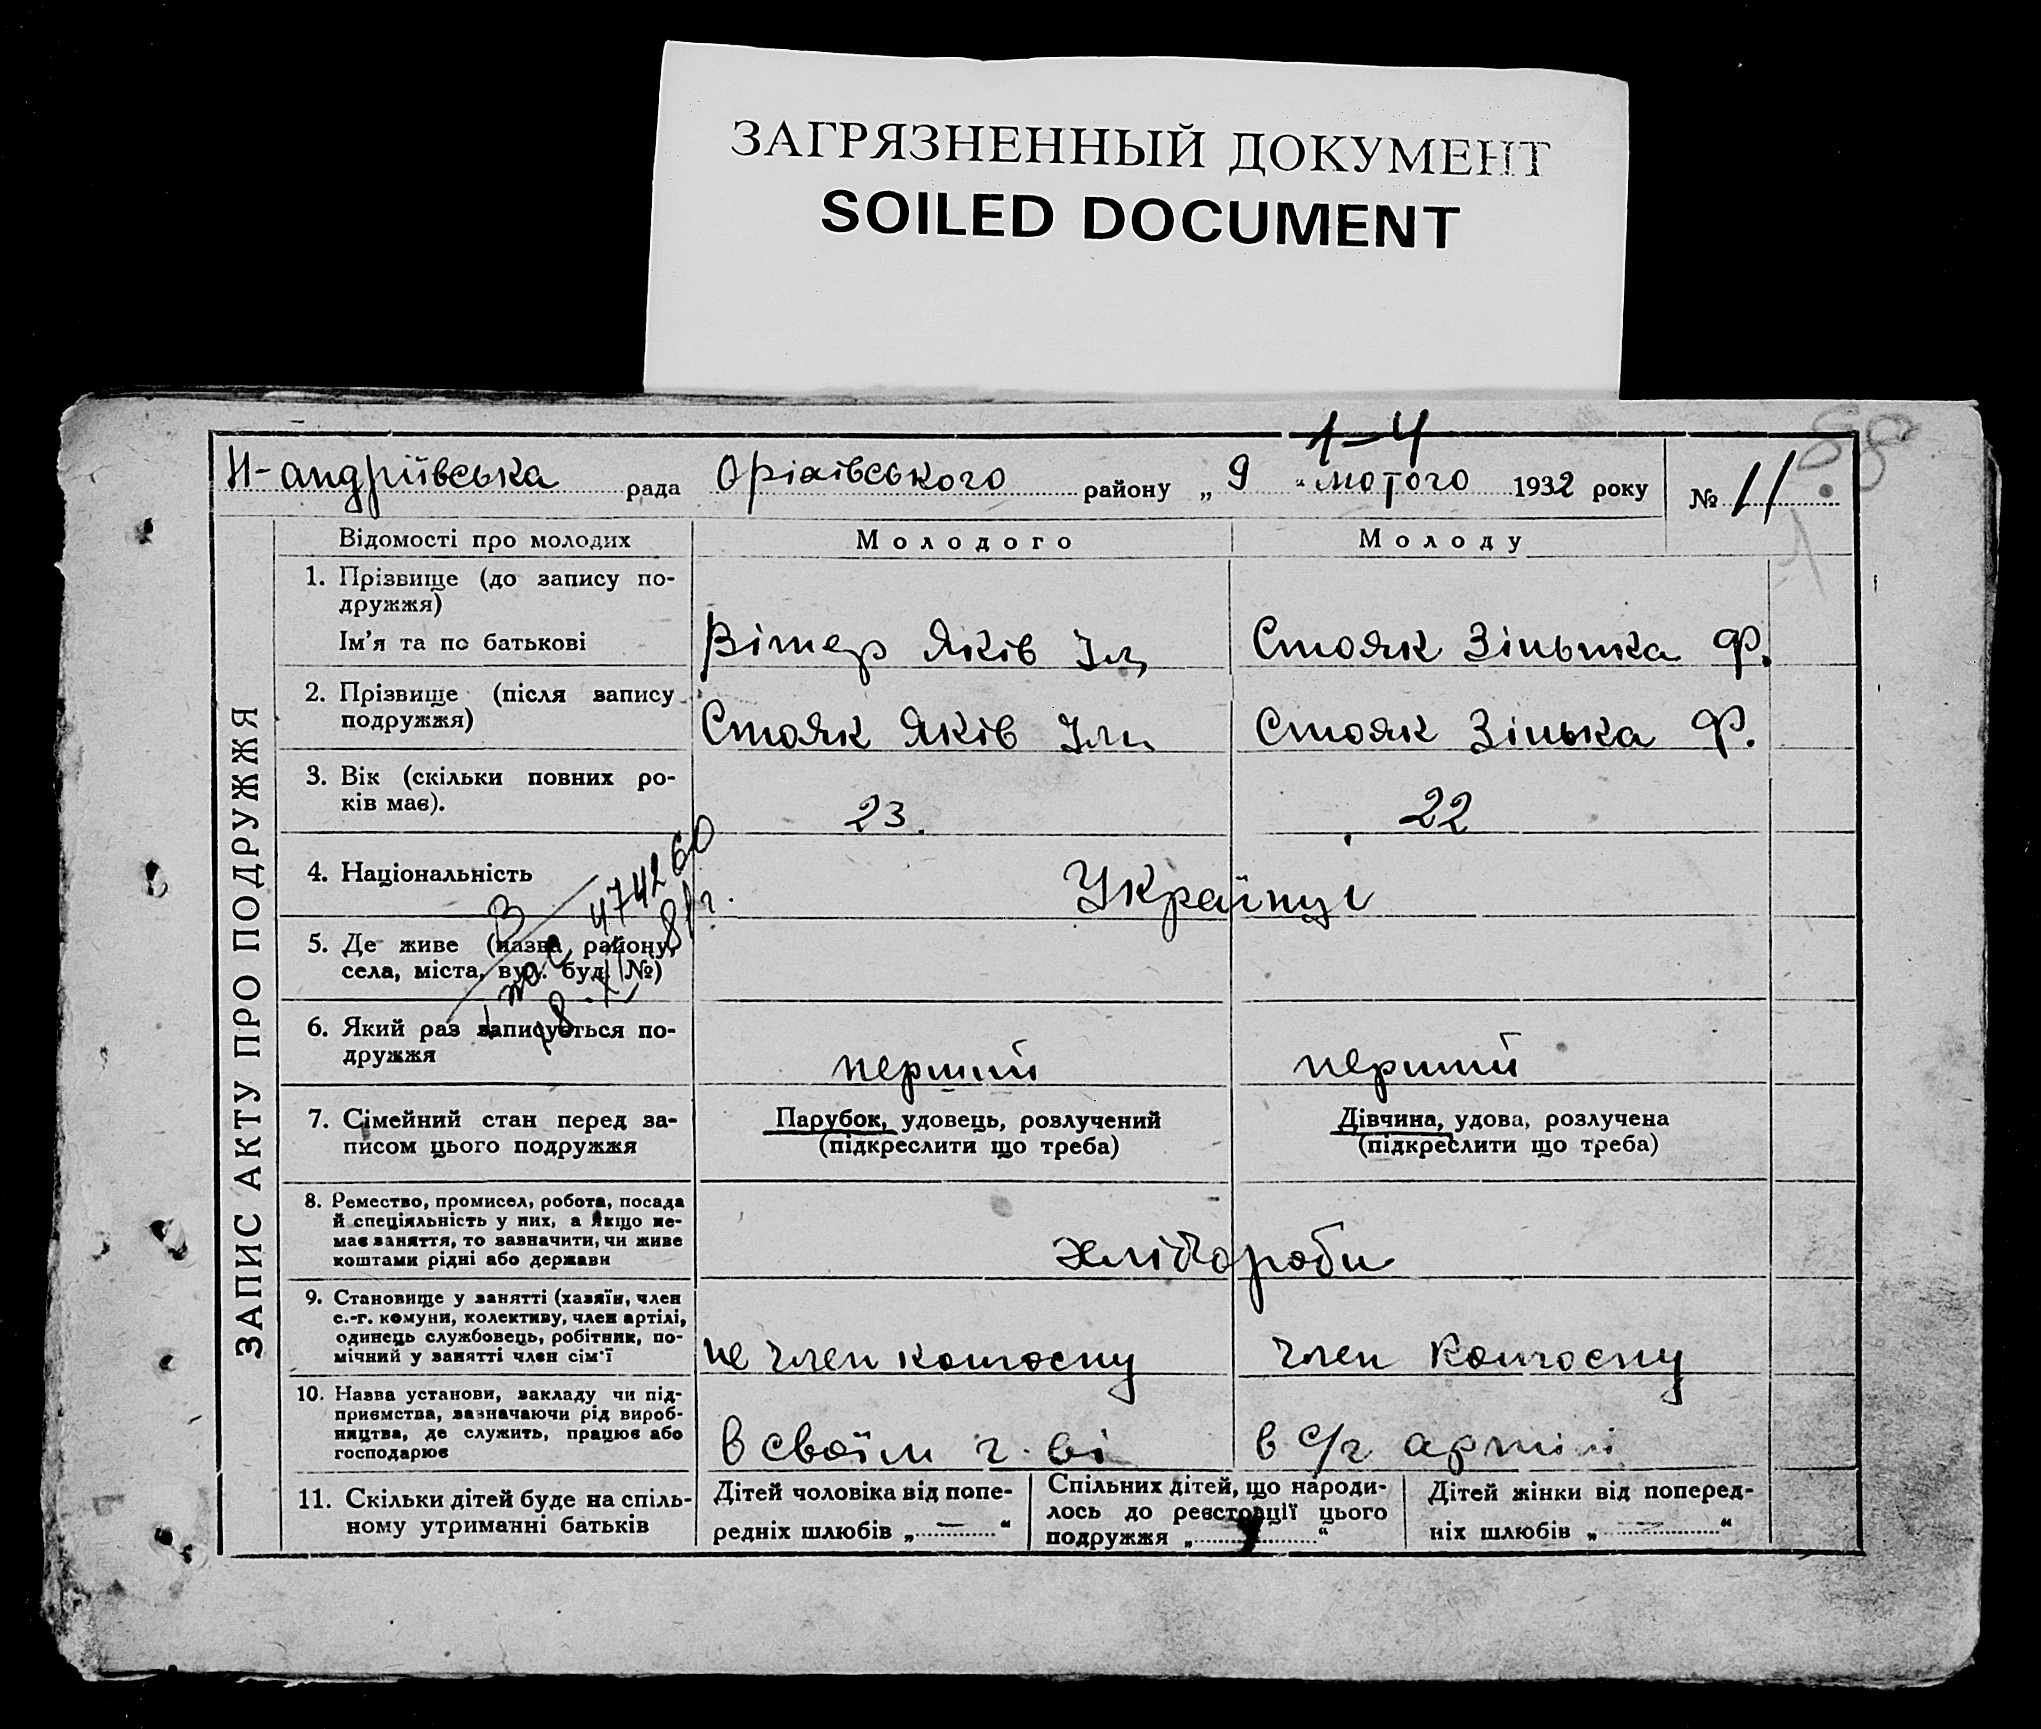 ЗАГРЯЗНЕННЫЙ ДОКУМЕНТ
SOILED DOCUMENT
1–4
88
Н-андріївська рада Оріхівського району „ 9 “ лютого 1932 року № 11
ЗАПИС АКТУ ПРО ПОДРУЖЖЯ
Відомості про молодих Молодого Молоду
1. Прізвище (до запису по-
дружжя)
Ім'я та по батькові Вітер Яків Ілц Стояк Зінька Ф.
2. Прізвище (після запису
подружжя) Стояк Яків Іл. Стояк Зінька Ф.
3. Вік (скільки повних ро-
ків має). 23. 22
4. Національність Українці
474260
5. Де живе (назва району,
села, міста, вул. буд. №)
18.XI-81г.
6. Який раз записується по-
дружжя перший перший
7. Сімейний стан перед за-
писом цього подружжя
Парубок, удовець, розлучений
(підкреслити що треба)
Дівчина, удова, розлучена
(підкреслити що треба)
8. Ремество, промисел, робота, посада
й спеціяльність у них, а якщо не-
має заняття, то зазначити, чи живе
коштами рідні або держави
хлібороби
9. Становище у занятті (хазяїн, член
с.-г. комуни, колективу, член артілі,
одинець службовець, робітник, по-
мічний у занятті член сім'ї
не член колгоспу член колгоспу
10. Назва установи, закладу чи під-
приємства, зазначаючи рід вироб-
ництва, де служить, працює або
господарює
в своїм г. ві в с/г артілі
11. Скільки дітей буде на спіль-
ному утриманні батьків
Дітей чоловіка від попе-
редніх шлюбів „ — “
Спільних дітей, що народи-
лось до реєстрації цього
подружжя „ “
Дітей жінки від поперед-
ніх шлюбів „ — “